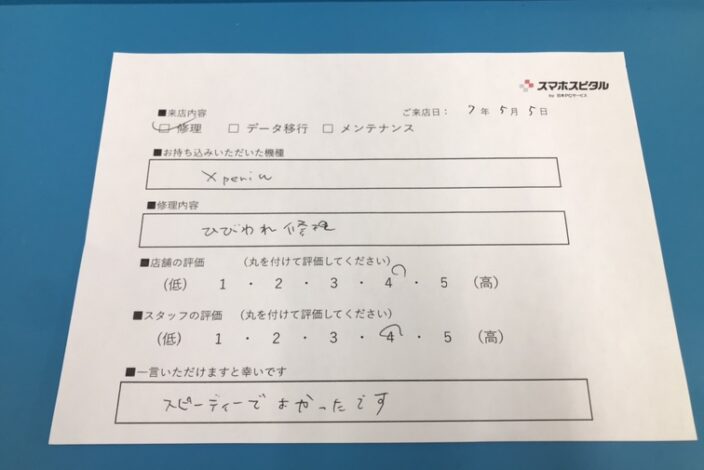 スマホスピタル
by 日本PCサービス
■来店内容
ご来店日: 7年5月5日
□ 修理 □ データ移行 □ メンテナンス
■お持ち込みいただいた機種
Xperia
■修理内容
ひびわれ修理
■店舗の評価 (丸を付けて評価してください)
(低) 1 ・ 2 ・ 3 ・ 4 ・ 5 (高)
■スタッフの評価 (丸を付けて評価してください)
(低) 1 ・ 2 ・ 3 ・ 4 ・ 5 (高)
■一言いただけますと幸いです
スピーディーでよかったです